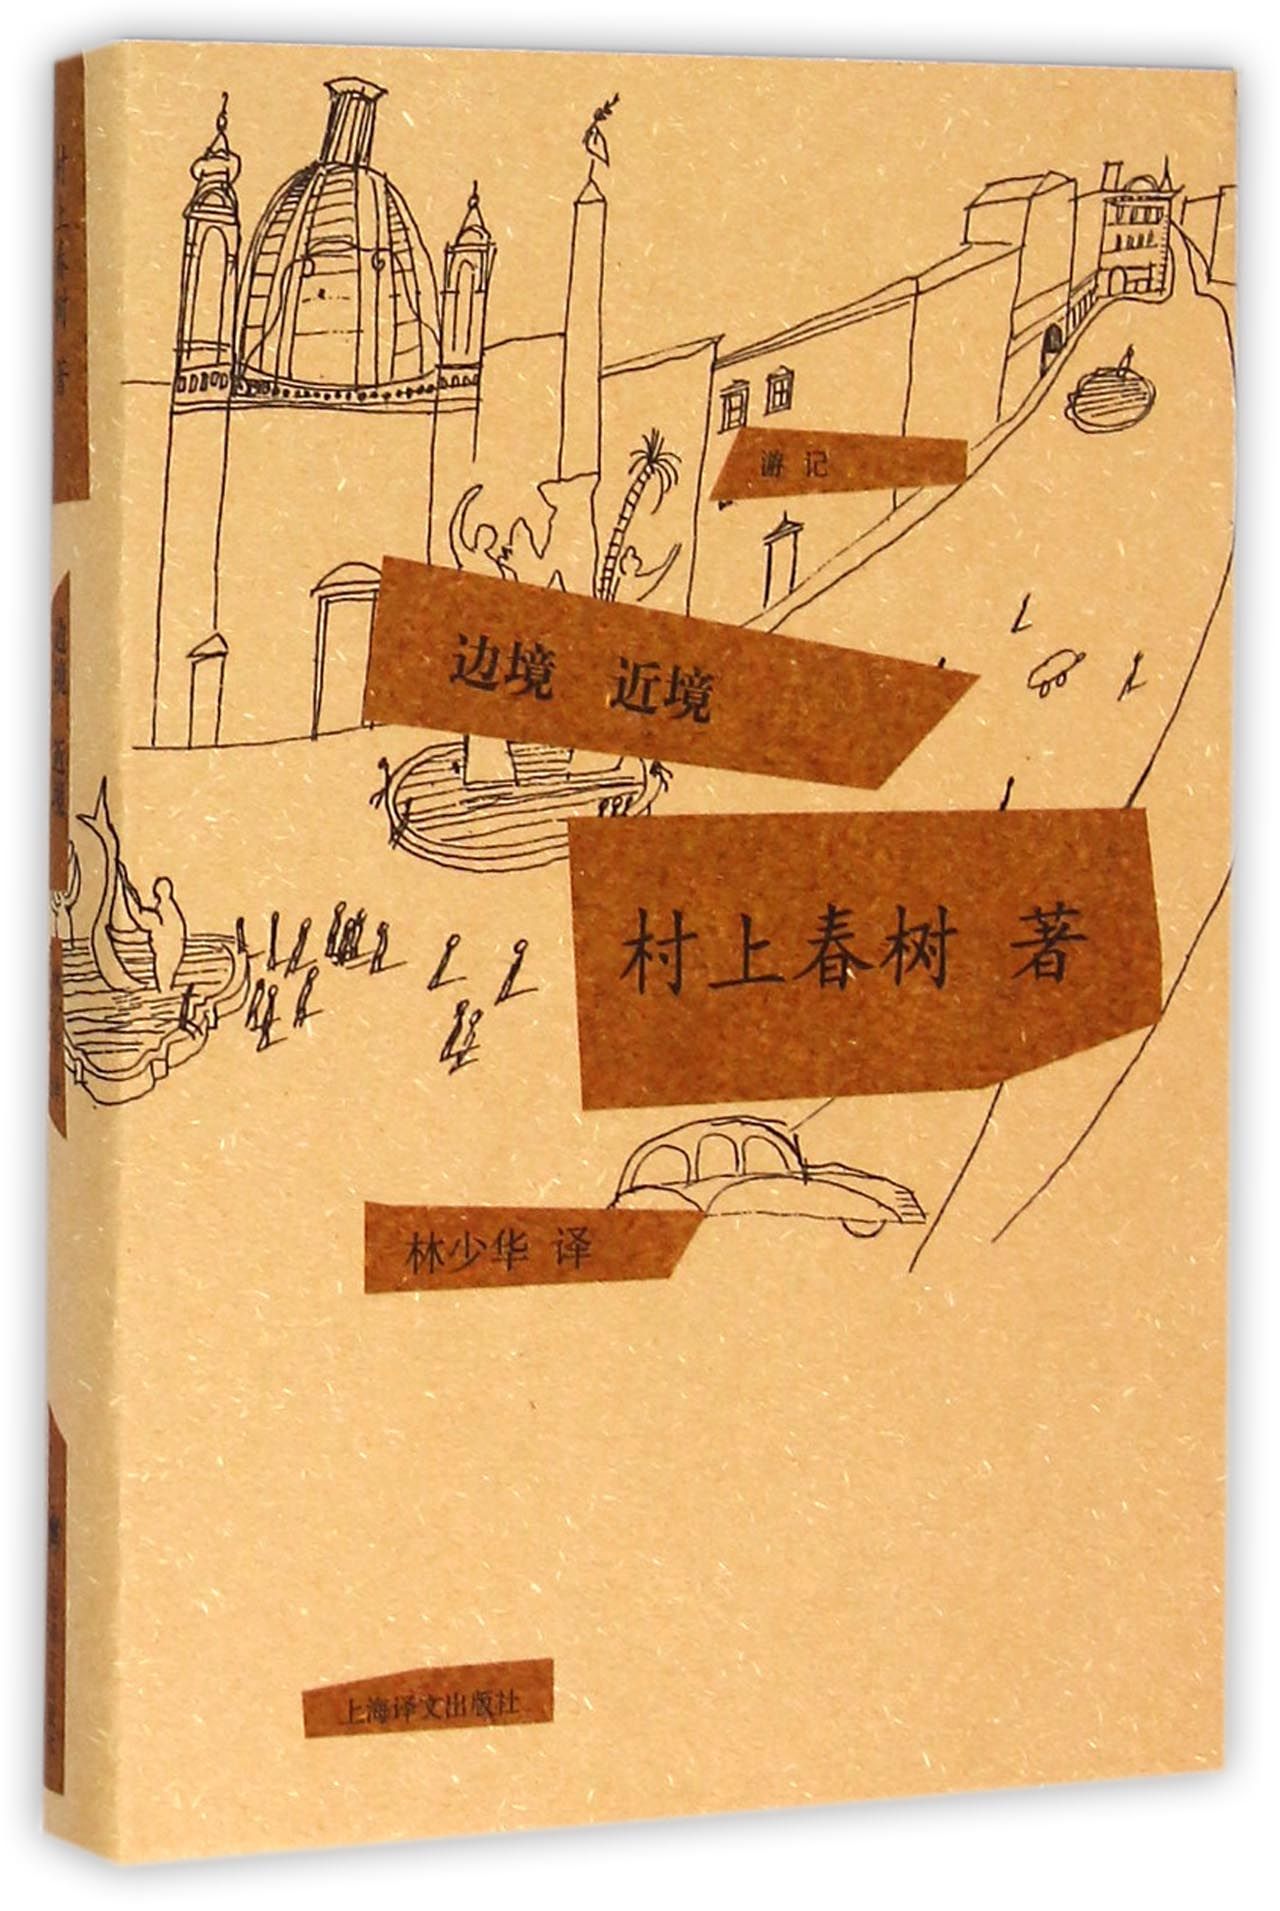 游记
边境 近境
村上春树 著
林少华 译
上海译文出版社
村上春树 著
边境 近境